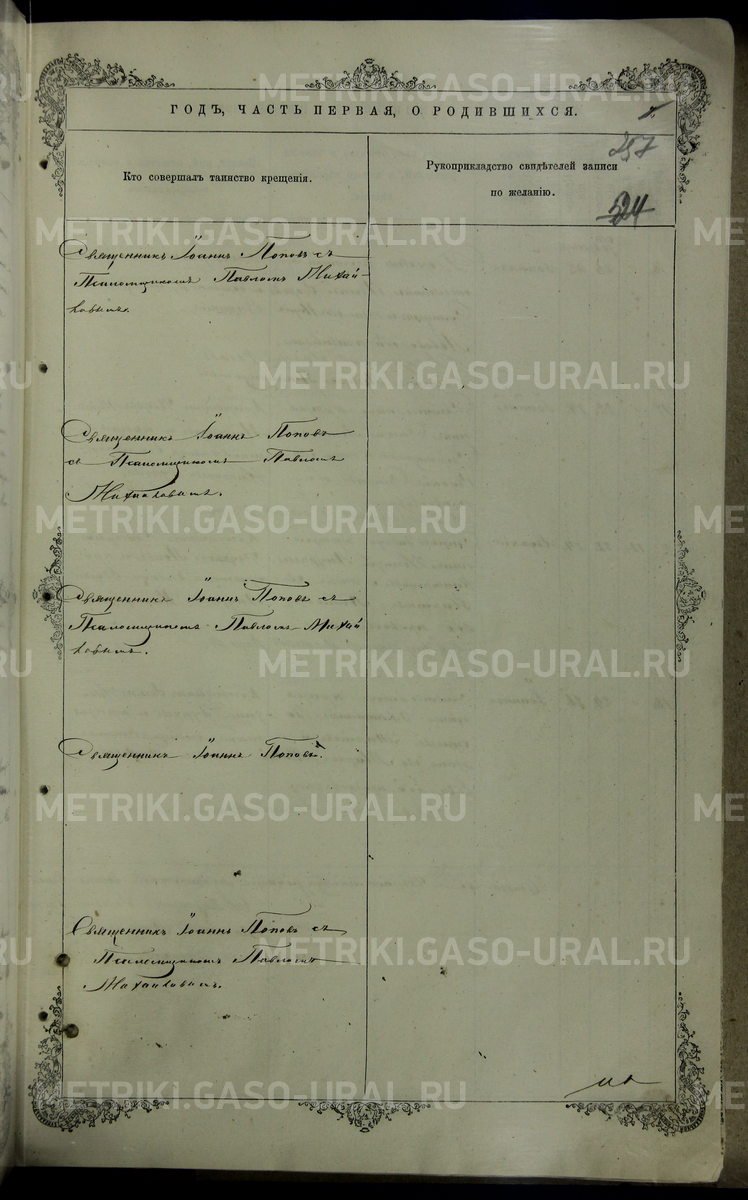 METRIKI.GASO-URAL.RU
ГОДЪ, ЧАСТЬ ПЕРВАЯ, О РОДИВШИХСЯ.
Кто совершалъ таинство крещенія.
Рукоприкладство свидѣтелей записи
по желанію.
Священникъ Іоаннъ Поповъ съ
Псаломщикомъ Павломъ Михай-
ловымъ.
Священникъ Іоаннъ Поповъ
съ Псаломщикомъ Павломъ
Михайловымъ.
Священникъ Іоаннъ Поповъ съ
Псаломщикомъ Павломъ Михай
ловымъ.
Священникъ Іоаннъ Поповъ.
Священникъ Іоаннъ Поповъ съ
Псаломщикомъ Павломъ
Михайловымъ.